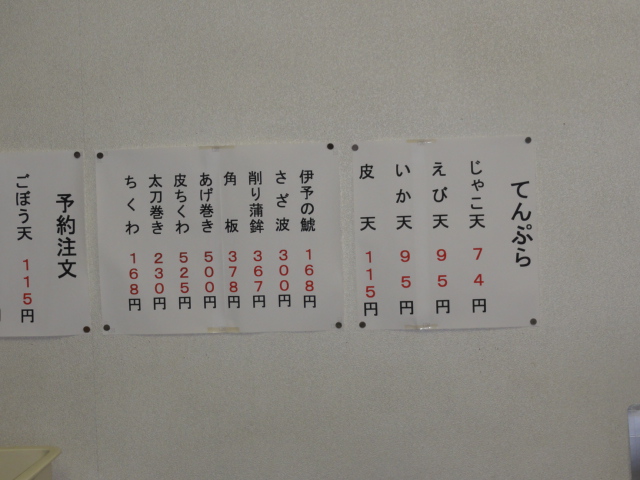 てんぷら
じゃこ天 74円
えび天 95円
いか天 95円
皮天 115円
伊予の鯱 168円
さざ波 300円
削り蒲鉾 367円
角板 378円
あげ巻き 500円
皮ちくわ 525円
太刀巻き 230円
ちくわ 168円
予約注文
ごぼう天 115円